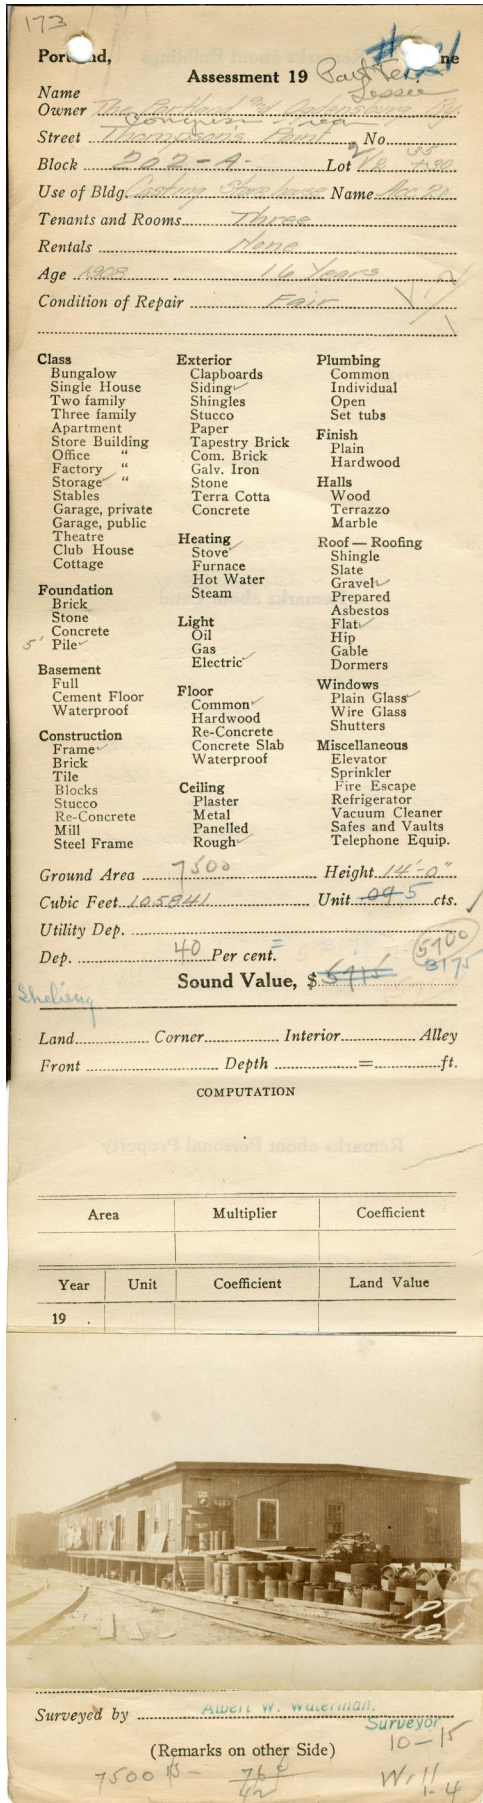 173
Portland,
Assessment 19
Lessee
Name
Owner The Portland and Ogdensburg Ry.
Congress near
Street Thompson's Point No.
Block 202-A- Lot
Use of Bldg. Casting Storehouse Name
Tenants and Rooms Three
Rentals None
Age 1908 16 Years
Condition of Repair Fair
Class
Bungalow
Single House
Two family
Three family
Apartment
Store Building
Office "
Factory "
Storage ✓ "
Stables
Garage, private
Garage, public
Theatre
Club House
Cottage
Foundation
Brick
Stone
Concrete
5' Pile ✓
Basement
Full
Cement Floor
Waterproof
Construction
Frame ✓
Brick
Tile
Blocks
Stucco
Re-Concrete
Mill
Steel Frame
Exterior
Clapboards
Siding ✓
Shingles
Stucco
Paper
Tapestry Brick
Com. Brick
Galv. Iron
Stone
Terra Cotta
Concrete
Heating
Stove ✓
Furnace
Hot Water
Steam
Light
Oil
Gas
Electric ✓
Floor
Common ✓
Hardwood
Re-Concrete
Concrete Slab
Waterproof
Ceiling
Plaster
Metal
Panelled
Rough ✓
Plumbing
Common
Individual
Open
Set tubs
Finish
Plain
Hardwood
Halls
Wood
Terrazzo
Marble
Roof — Roofing
Shingle
Slate
Gravel ✓
Prepared
Asbestos
Flat ✓
Hip
Gable
Dormers
Windows
Plain Glass ✓
Wire Glass
Shutters
Miscellaneous
Elevator
Sprinkler
Fire Escape
Refrigerator
Vacuum Cleaner
Safes and Vaults
Telephone Equip.
Ground Area 7500 Height 14'-0"
Cubic Feet 105841 Unit 09 5 cts. ✓
Utility Dep.
Dep. 40 Per cent. = 5700
3175
Sound Value, $ 5715
Shelving
Land Corner Interior Alley
Front Depth = ft.
COMPUTATION
Area Multiplier Coefficient
Year Unit Coefficient Land Value
19 .
PT
121
Surveyed by Albert W. Waterman,
Surveyor
(Remarks on other Side) 10-15
7500 76¢
42
Will
1-4